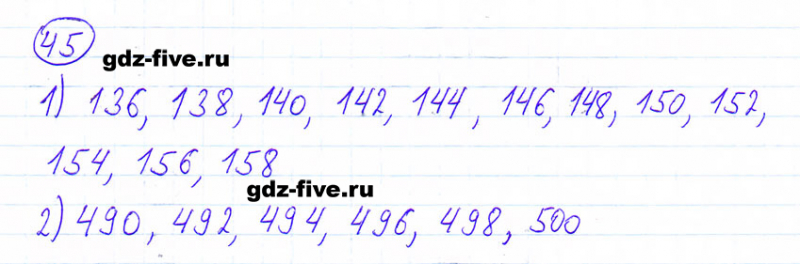 45
gdz-five.ru
1) 136, 138, 140, 142, 144, 146, 148, 150, 152,
154, 156, 158
gdz-five.ru
2) 490, 492, 494, 496, 498, 500